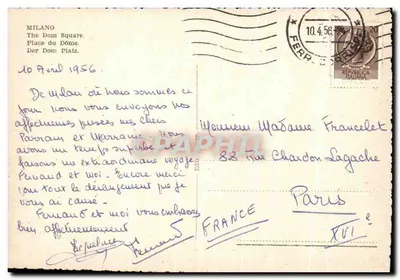 MILANO
The Dom Square.
Place du Dôme.
Der Dom Platz.
10 Avril 1956
De Milan où nous sommes ce
jour nous vous envoyons nos
affectueuses pensées mes chers
Parrain et Marraine. Nous
avons un temps superbe et
faisons un extraordinaire voyage
Fernand et moi. Encore merci
pour tout le dérangement que je
vous ai causé.
Fernand et moi vous embrassons
bien affectueusement
Fernand
10.4.56
FERR.
Monsieur Madame Francelet
88 Rue Chardon Lagache
Paris
XVIe
FRANCE